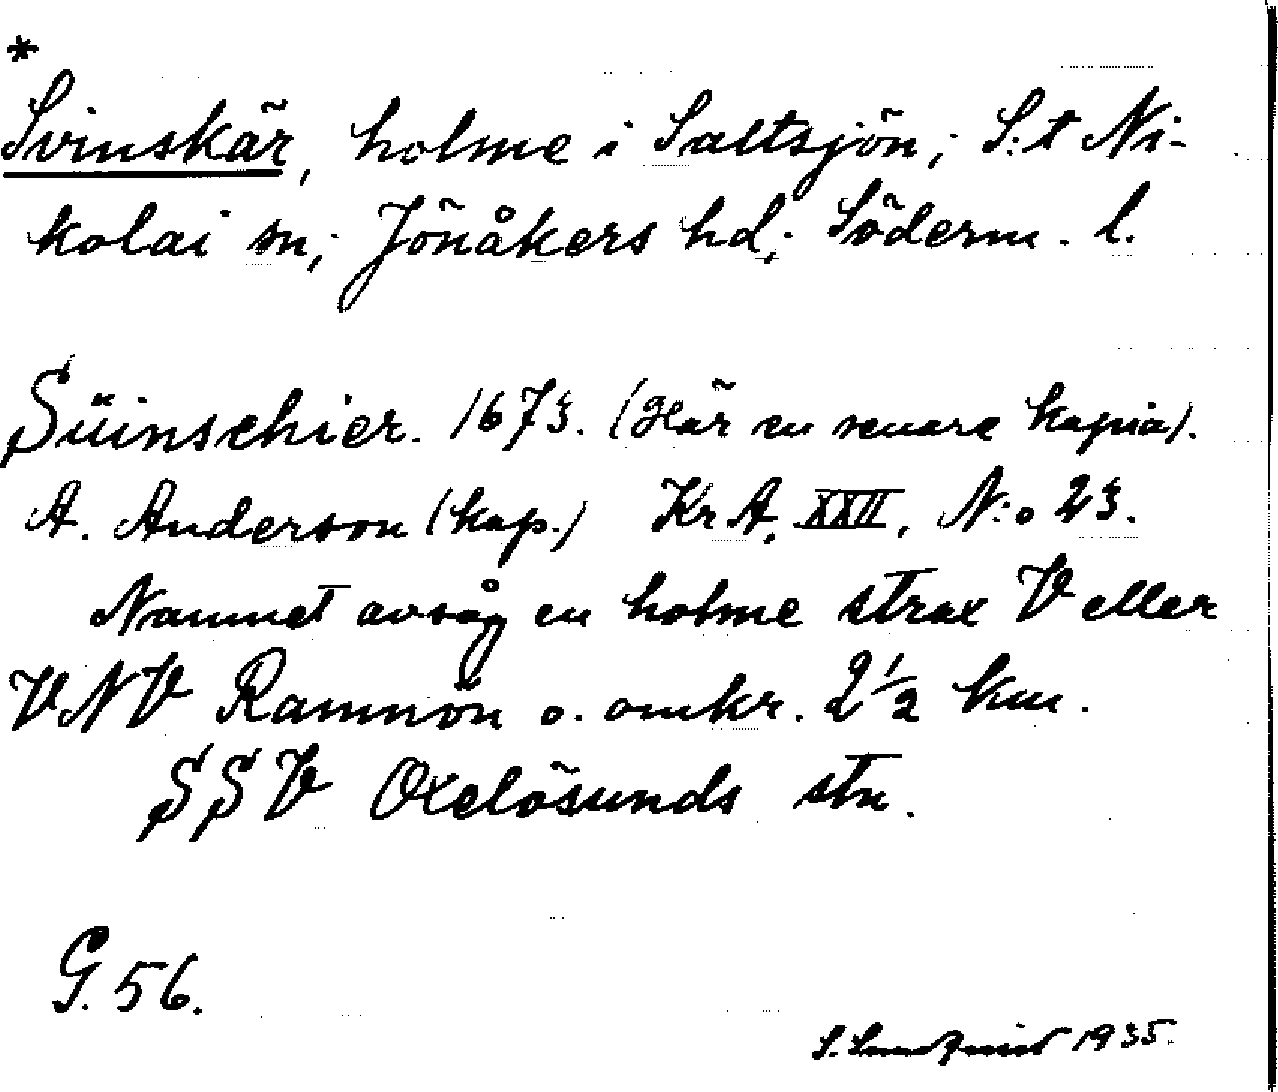 *
Svinskär, holme i Saltsjön; S:t Ni-
kolai sn; Jönåkers hd; Söderm. l.
Süinschier. 1673. (Här en senare kopia).
A. Anderson (kap.) Kr A, XXII, N:o 23.
Namnet avsåg en holme strax V eller
VNV Ramnön o. omkr. 2 1/2 km.
SSV Oxelösunds stn.
G. 56.
S. Lundquist 1935.